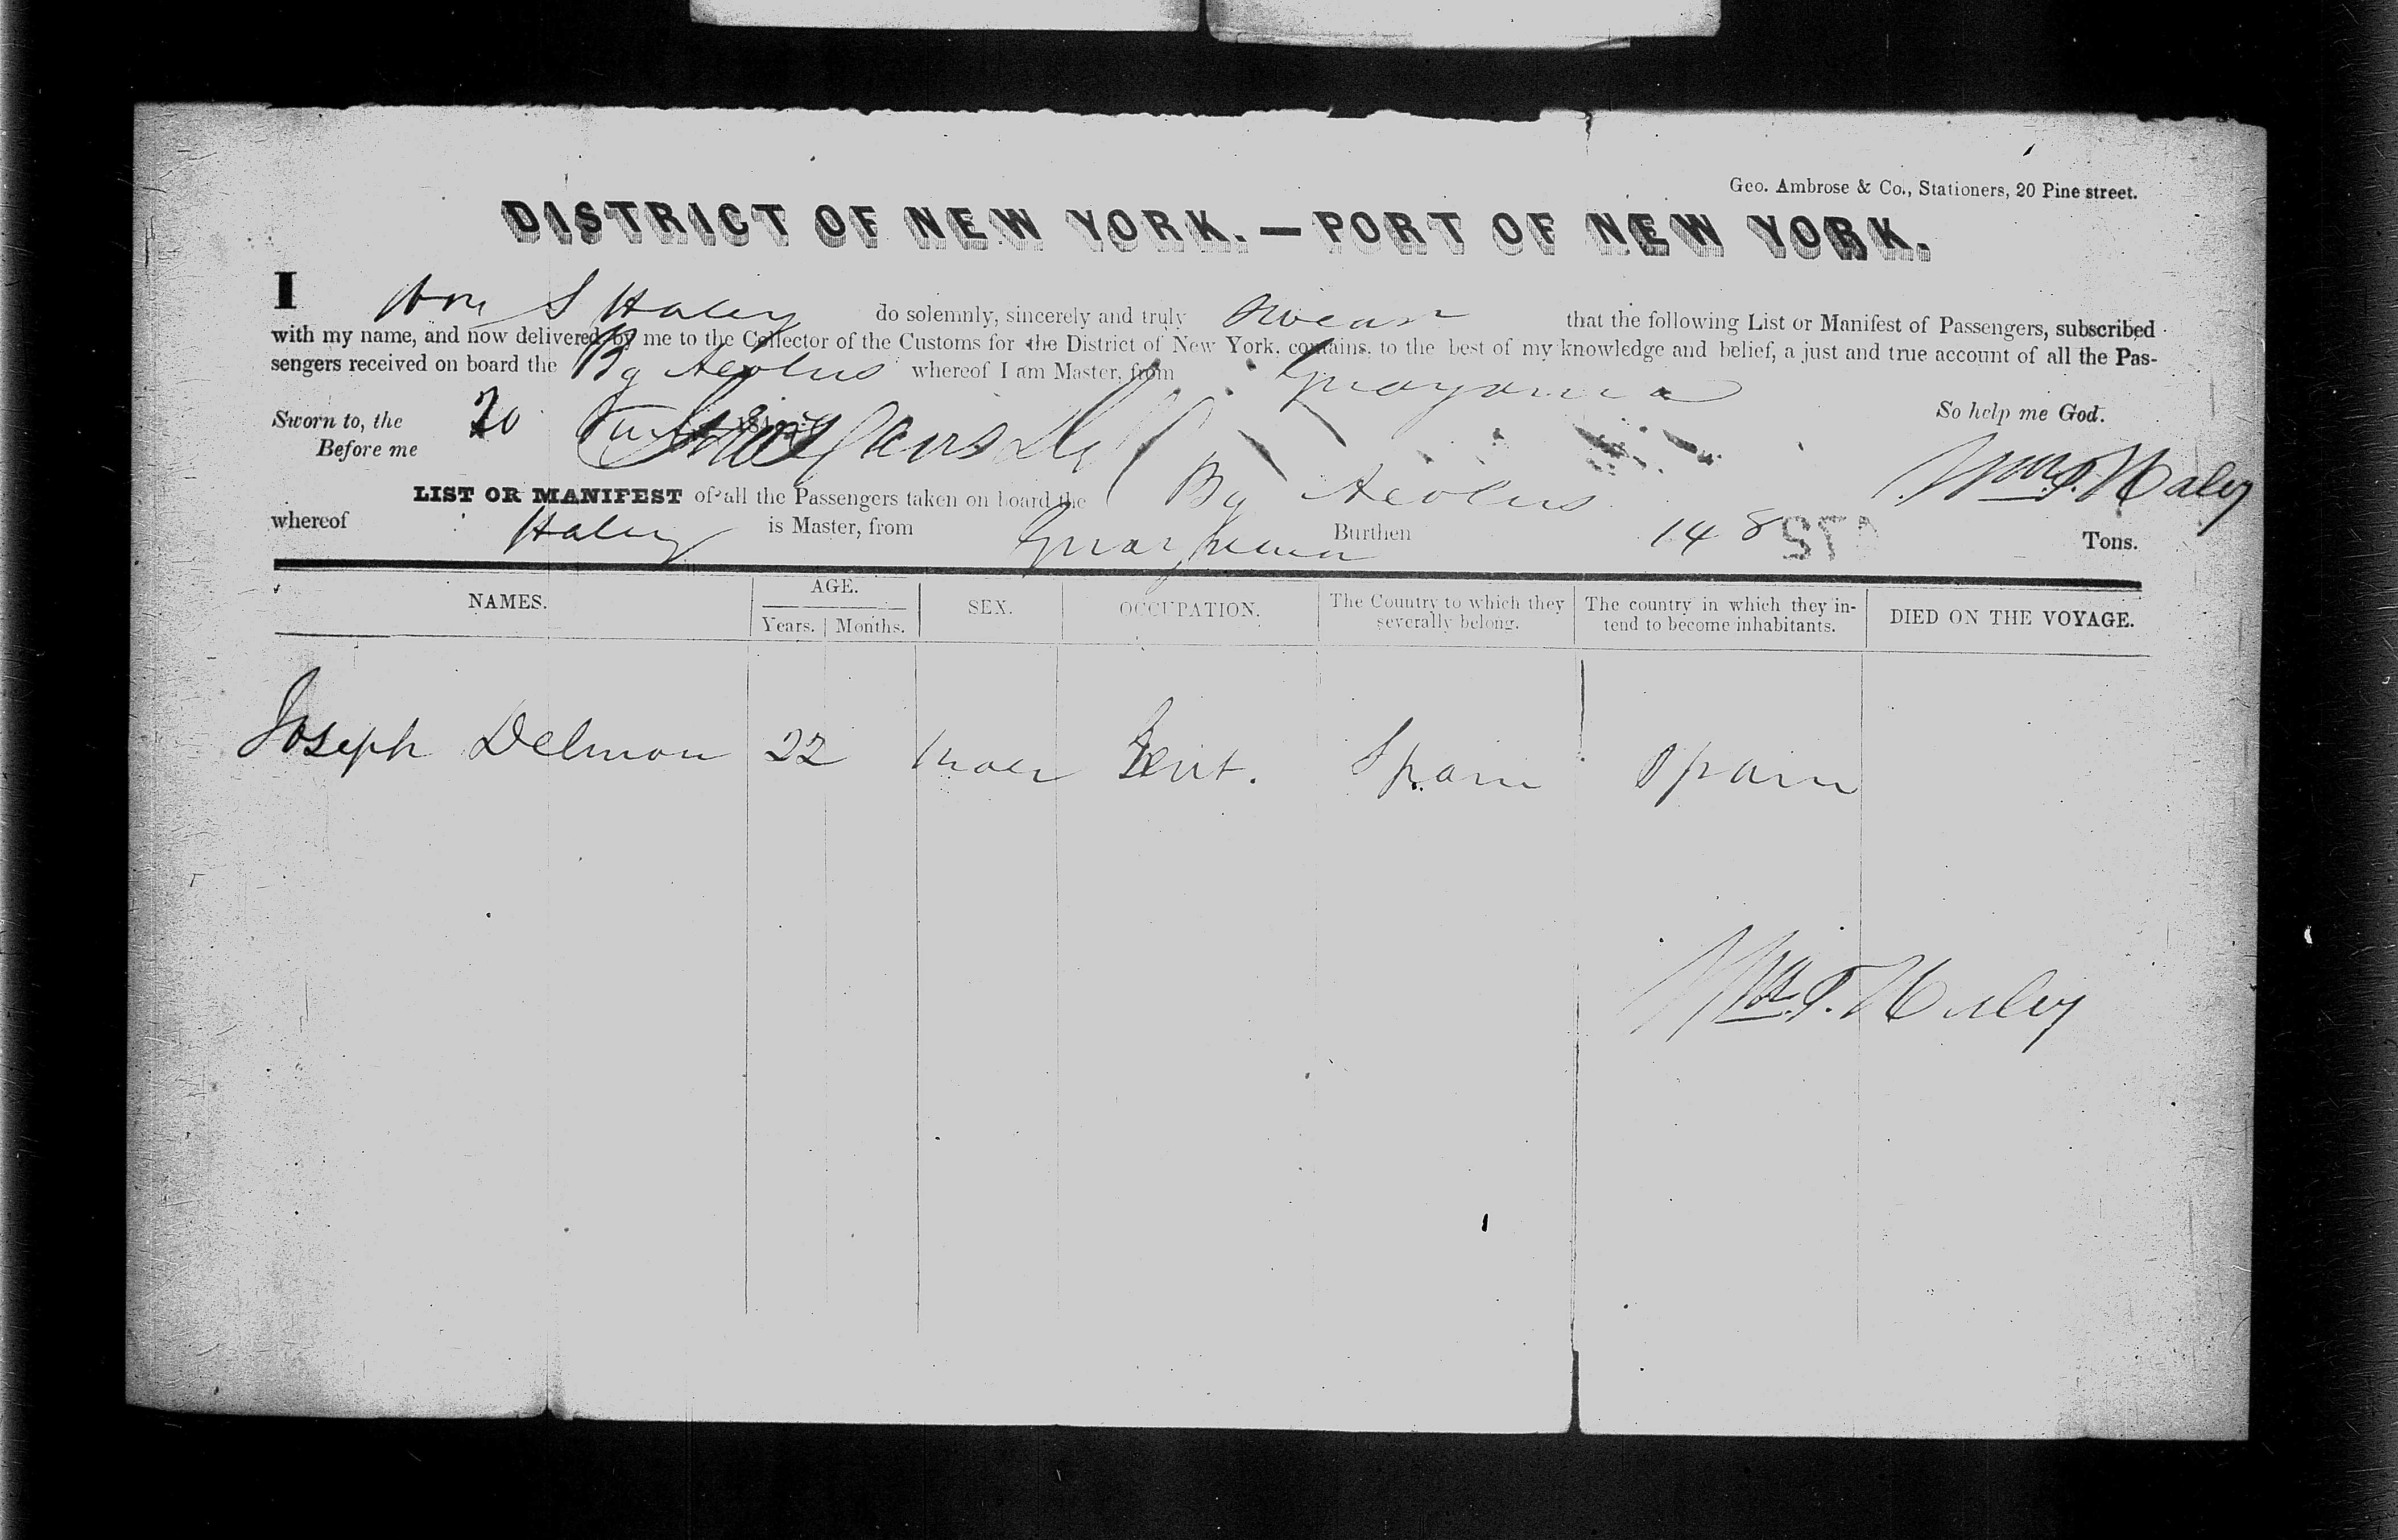 Geo. Ambrose & Co., Stationers, 20 Pine street.
DISTRICT OF NEW YORK.—PORT OF NEW YORK.
I Wm S Haley do solemnly, sincerely and truly swear that the following List or Manifest of Passengers, subscribed
with my name, and now delivered by me to the Collector of the Customs for the District of New York, contains, to the best of my knowledge and belief, a just and true account of all the Pas-
sengers received on board the Bg Aeolus whereof I am Master, from Guayama
So help me God.
Sworn to, the 20
Before me
Wm S. Haley
LIST OR MANIFEST of all the Passengers taken on board the Bg Aeolus
whereof Haley is Master, from Guayama Burthen 148 Tons.
NAMES. AGE. SEX. OCCUPATION. The Country to which they severally belong. The country in which they in-tend to become inhabitants. DIED ON THE VOYAGE.
Years. Months.
Joseph Delmon 22 Gent. Spain Spain
Wm S. Haley